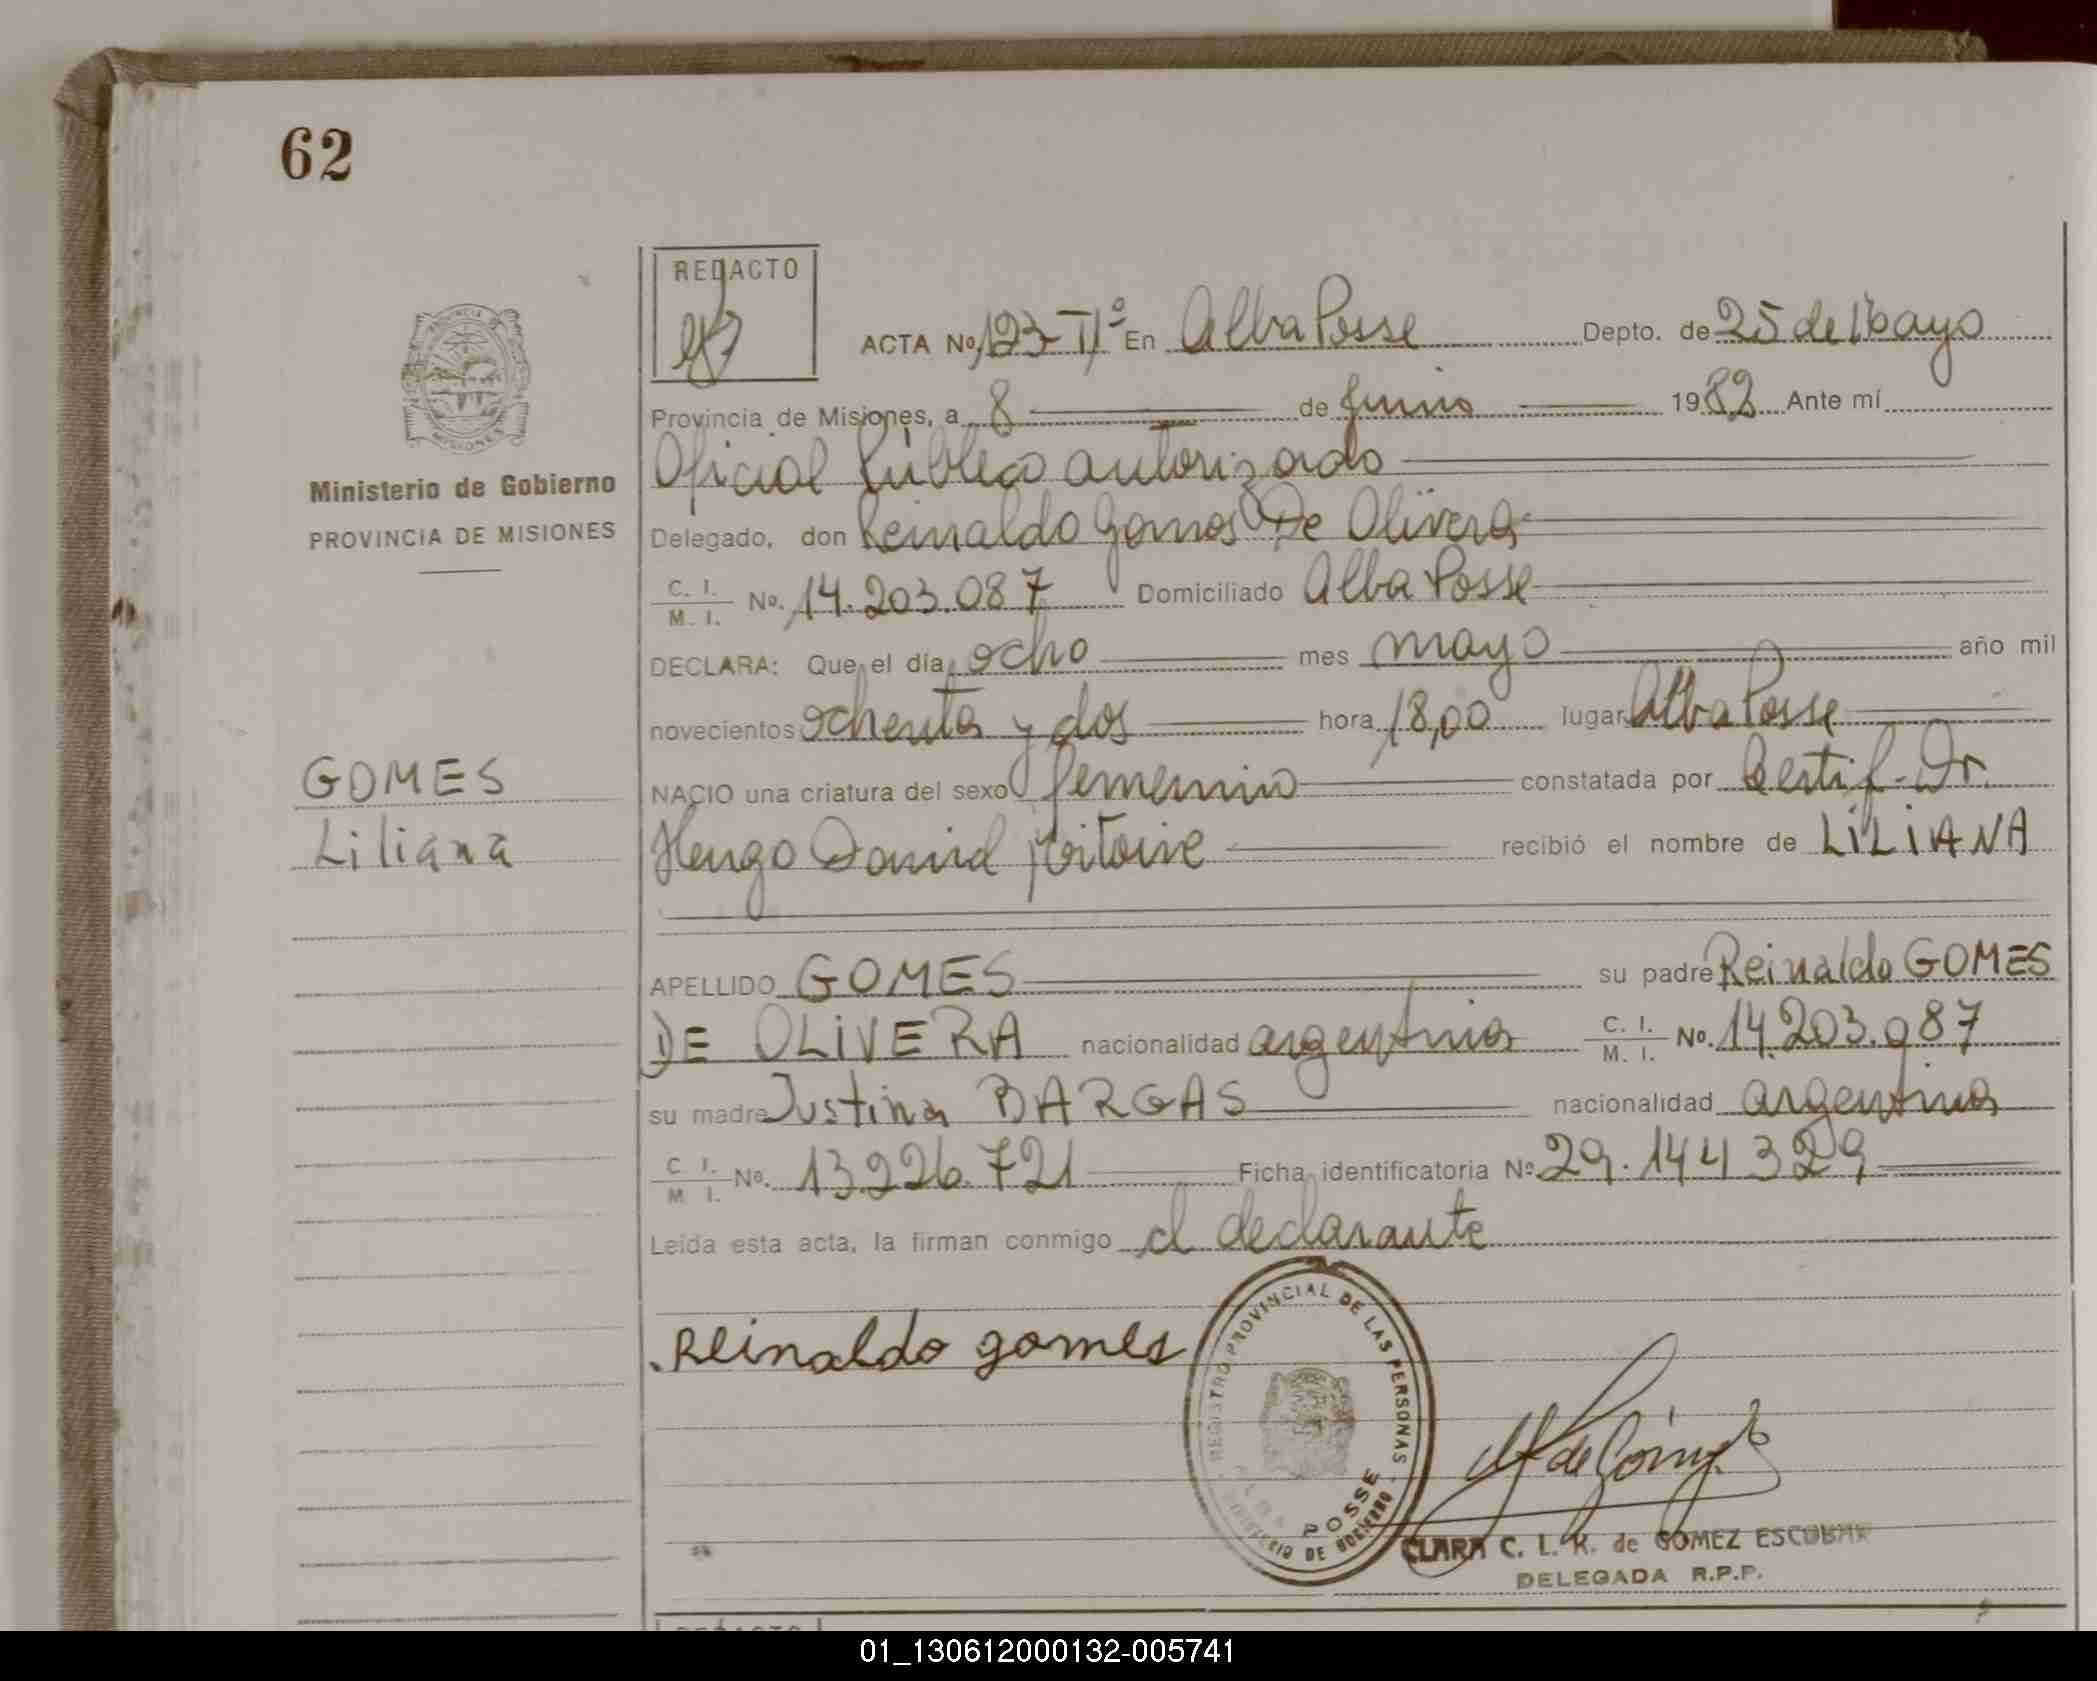 62
REDACTO
ACTA No. 123-Tº En Alba Posse Depto. de 25 de Mayo
Provincia de Misiones, a 8 de Junio 1982 Ante mí
Oficial Público autorizado
Ministerio de Gobierno
PROVINCIA DE MISIONES
Delegado, don Reinaldo Gomes De Olivera
C. I. / M. I. No. 14.203.087 Domiciliado Alba Posse
DECLARA: Que el día ocho mes mayo año mil
novecientos ochenta y dos hora 18,00 lugar Alba Posse
GOMES
Liliana
NACIO una criatura del sexo femenino constatada por Certif. Dr.
Hugo David recibió el nombre de LILIANA
APELLIDO GOMES su padre Reinaldo GOMES
DE OLIVERA nacionalidad argentina C. I. / M. I. No. 14.203.087
su madre Justina BARGAS nacionalidad argentina
C. I. / M. I. No. 13.226.721 Ficha identificatoria Nº 29.144.329
Leída esta acta, la firman conmigo el declarante
Reinaldo gomes
REGISTRO PROVINCIAL DE LAS PERSONAS
ALBA POSSE
MINISTERIO DE GOBIERNO
CLARA C. L. K. de GOMEZ ESCOBAR
DELEGADA R.P.P.
REDACTO
01_130612000132-005741